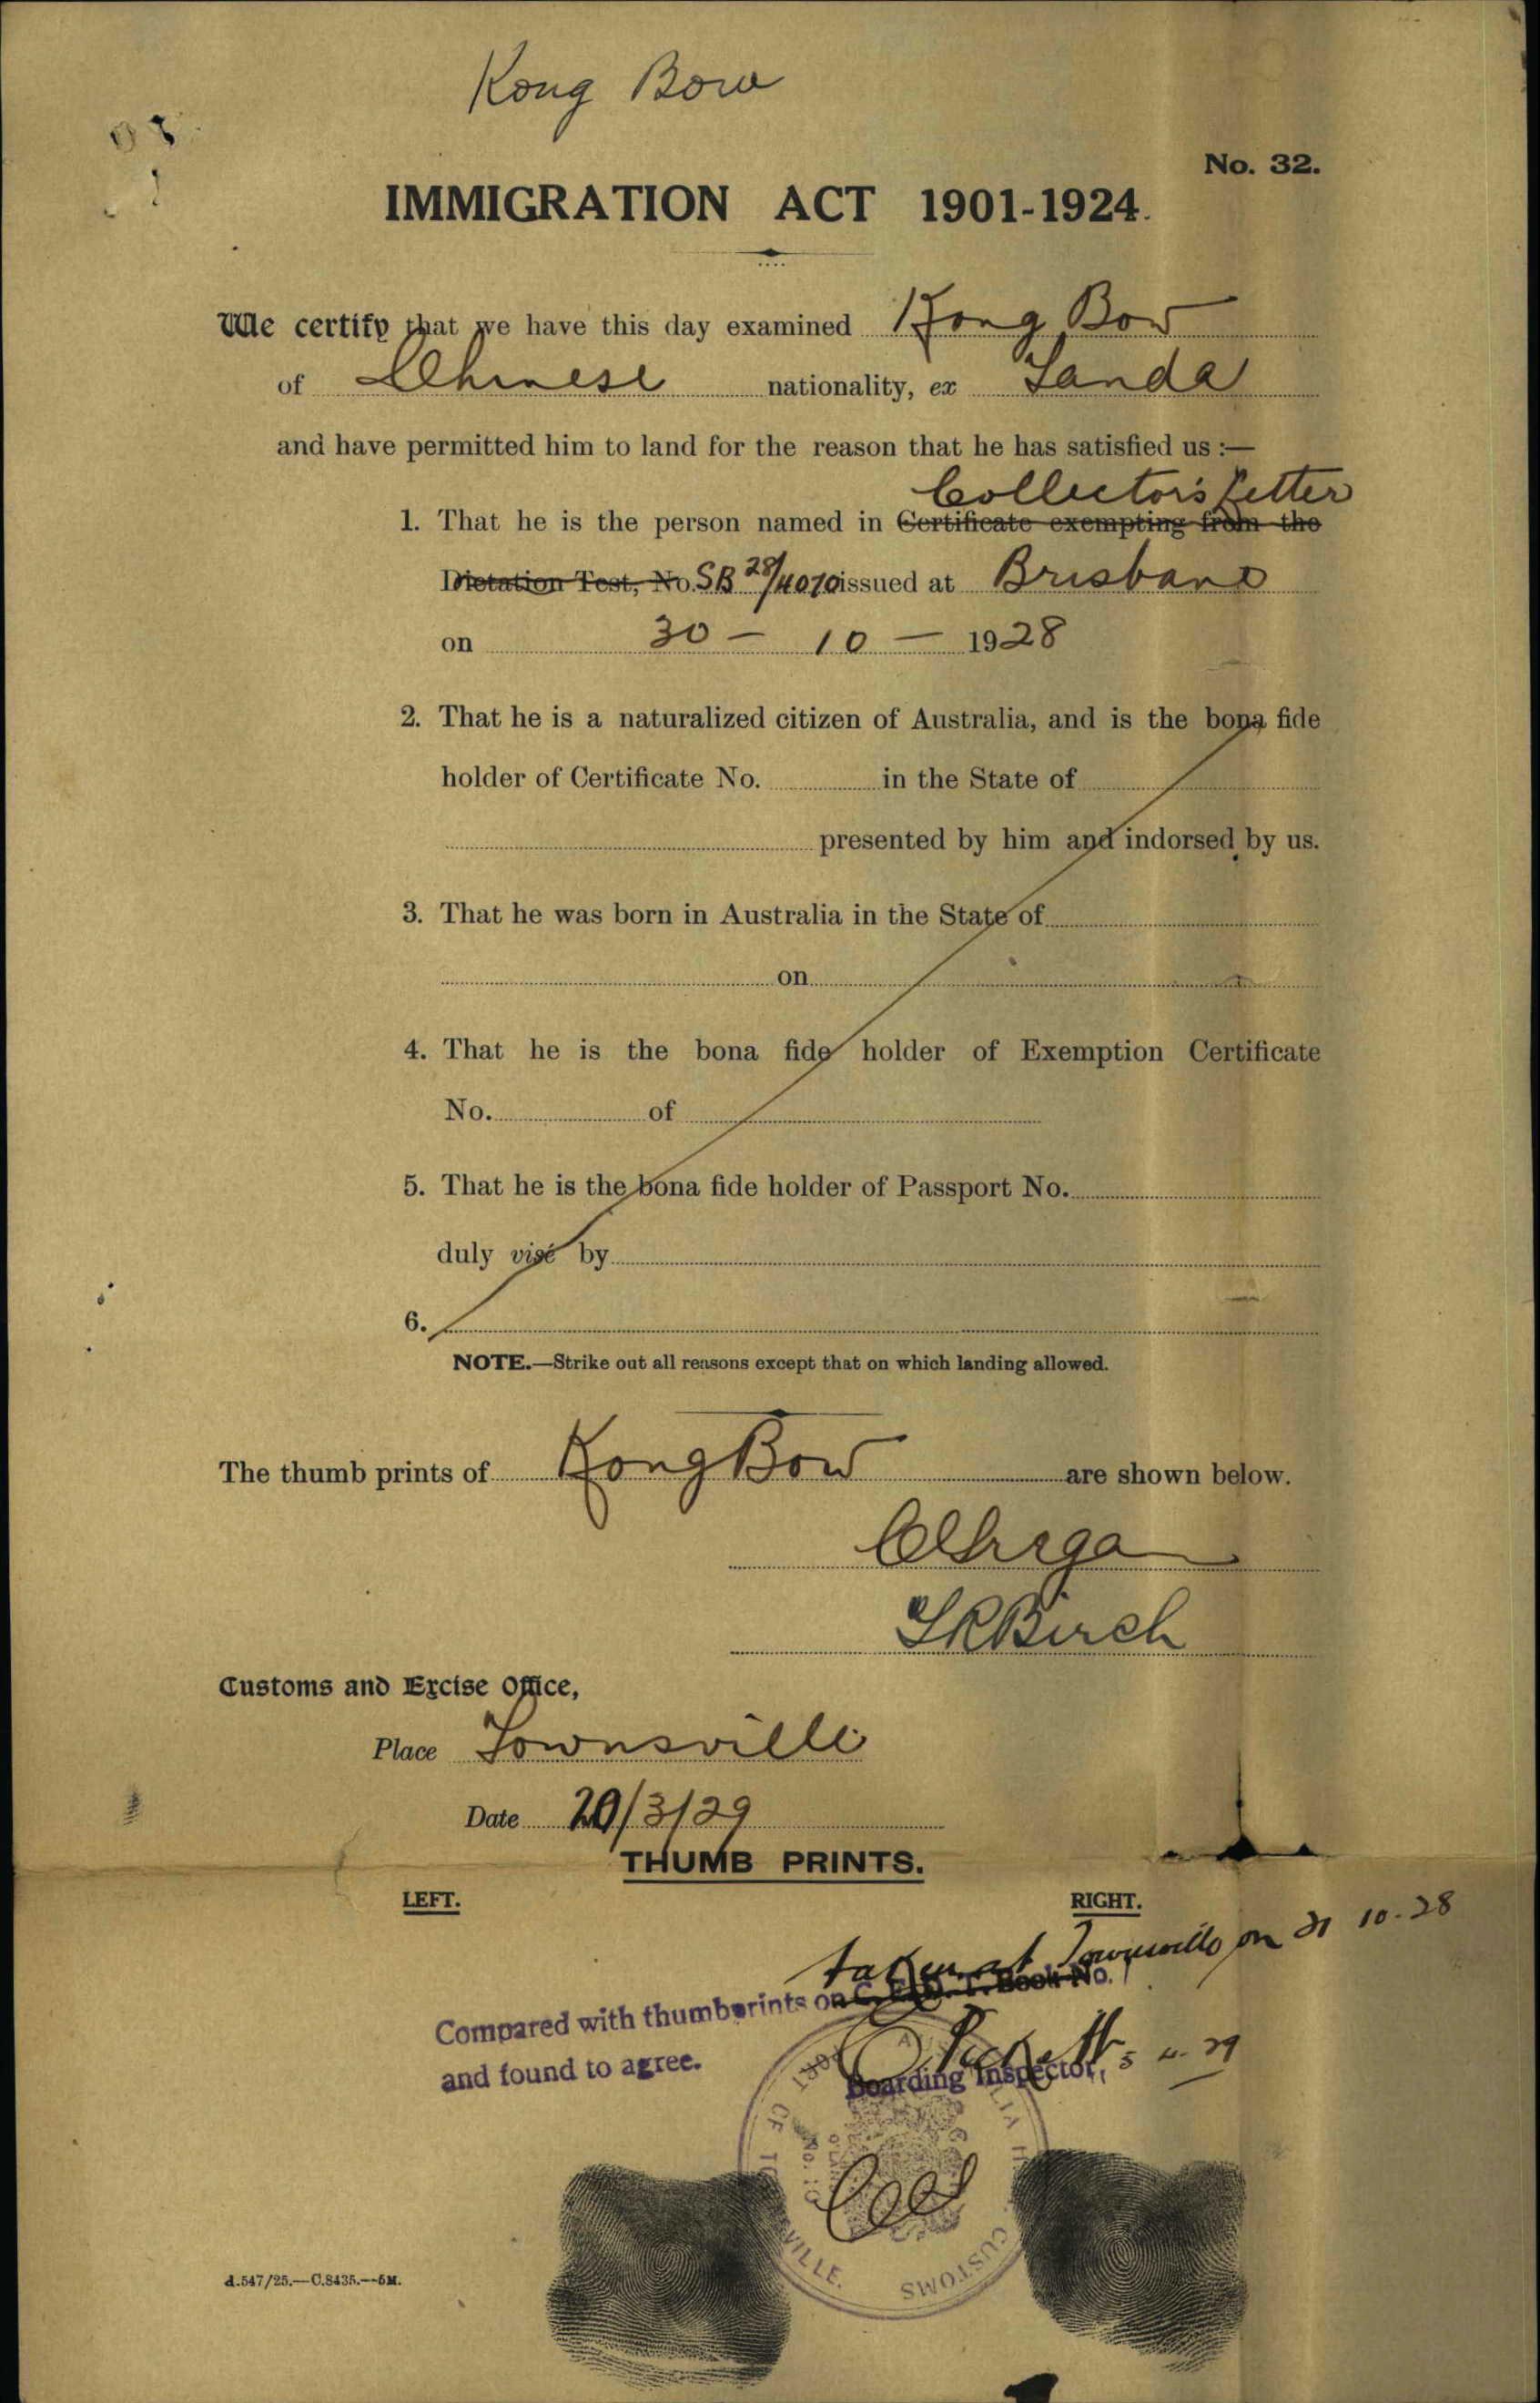 Kong Bow
No. 32.
IMMIGRATION ACT 1901-1924.
We certify that we have this day examined Kong Bow
of Chinese nationality, ex Tanda
and have permitted him to land for the reason that he has satisfied us :—
Collector's Letter
1. That he is the person named in Certificate exempting from the
Dictation Test, No. SB 28/4070 issued at Brisbane
on 30 - 10 - 1928
2. That he is a naturalized citizen of Australia, and is the bona fide
holder of Certificate No. in the State of
presented by him and indorsed by us.
3. That he was born in Australia in the State of
on
4. That he is the bona fide holder of Exemption Certificate
No. of
5. That he is the bona fide holder of Passport No.
duly visé by
6.
NOTE.—Strike out all reasons except that on which landing allowed.
The thumb prints of Kong Bow are shown below.
Birch
Customs and Excise Office,
Place Townsville
Date 20/3/29
THUMB PRINTS.
LEFT. RIGHT.
taken at Townsville on 31 10-28
Compared with thumbprints on C. E. D. T. Book No.
and found to agree.
Boarding Inspector, 5 4 29
CUSTOMS
A.547/25.—C.8435.—5M.